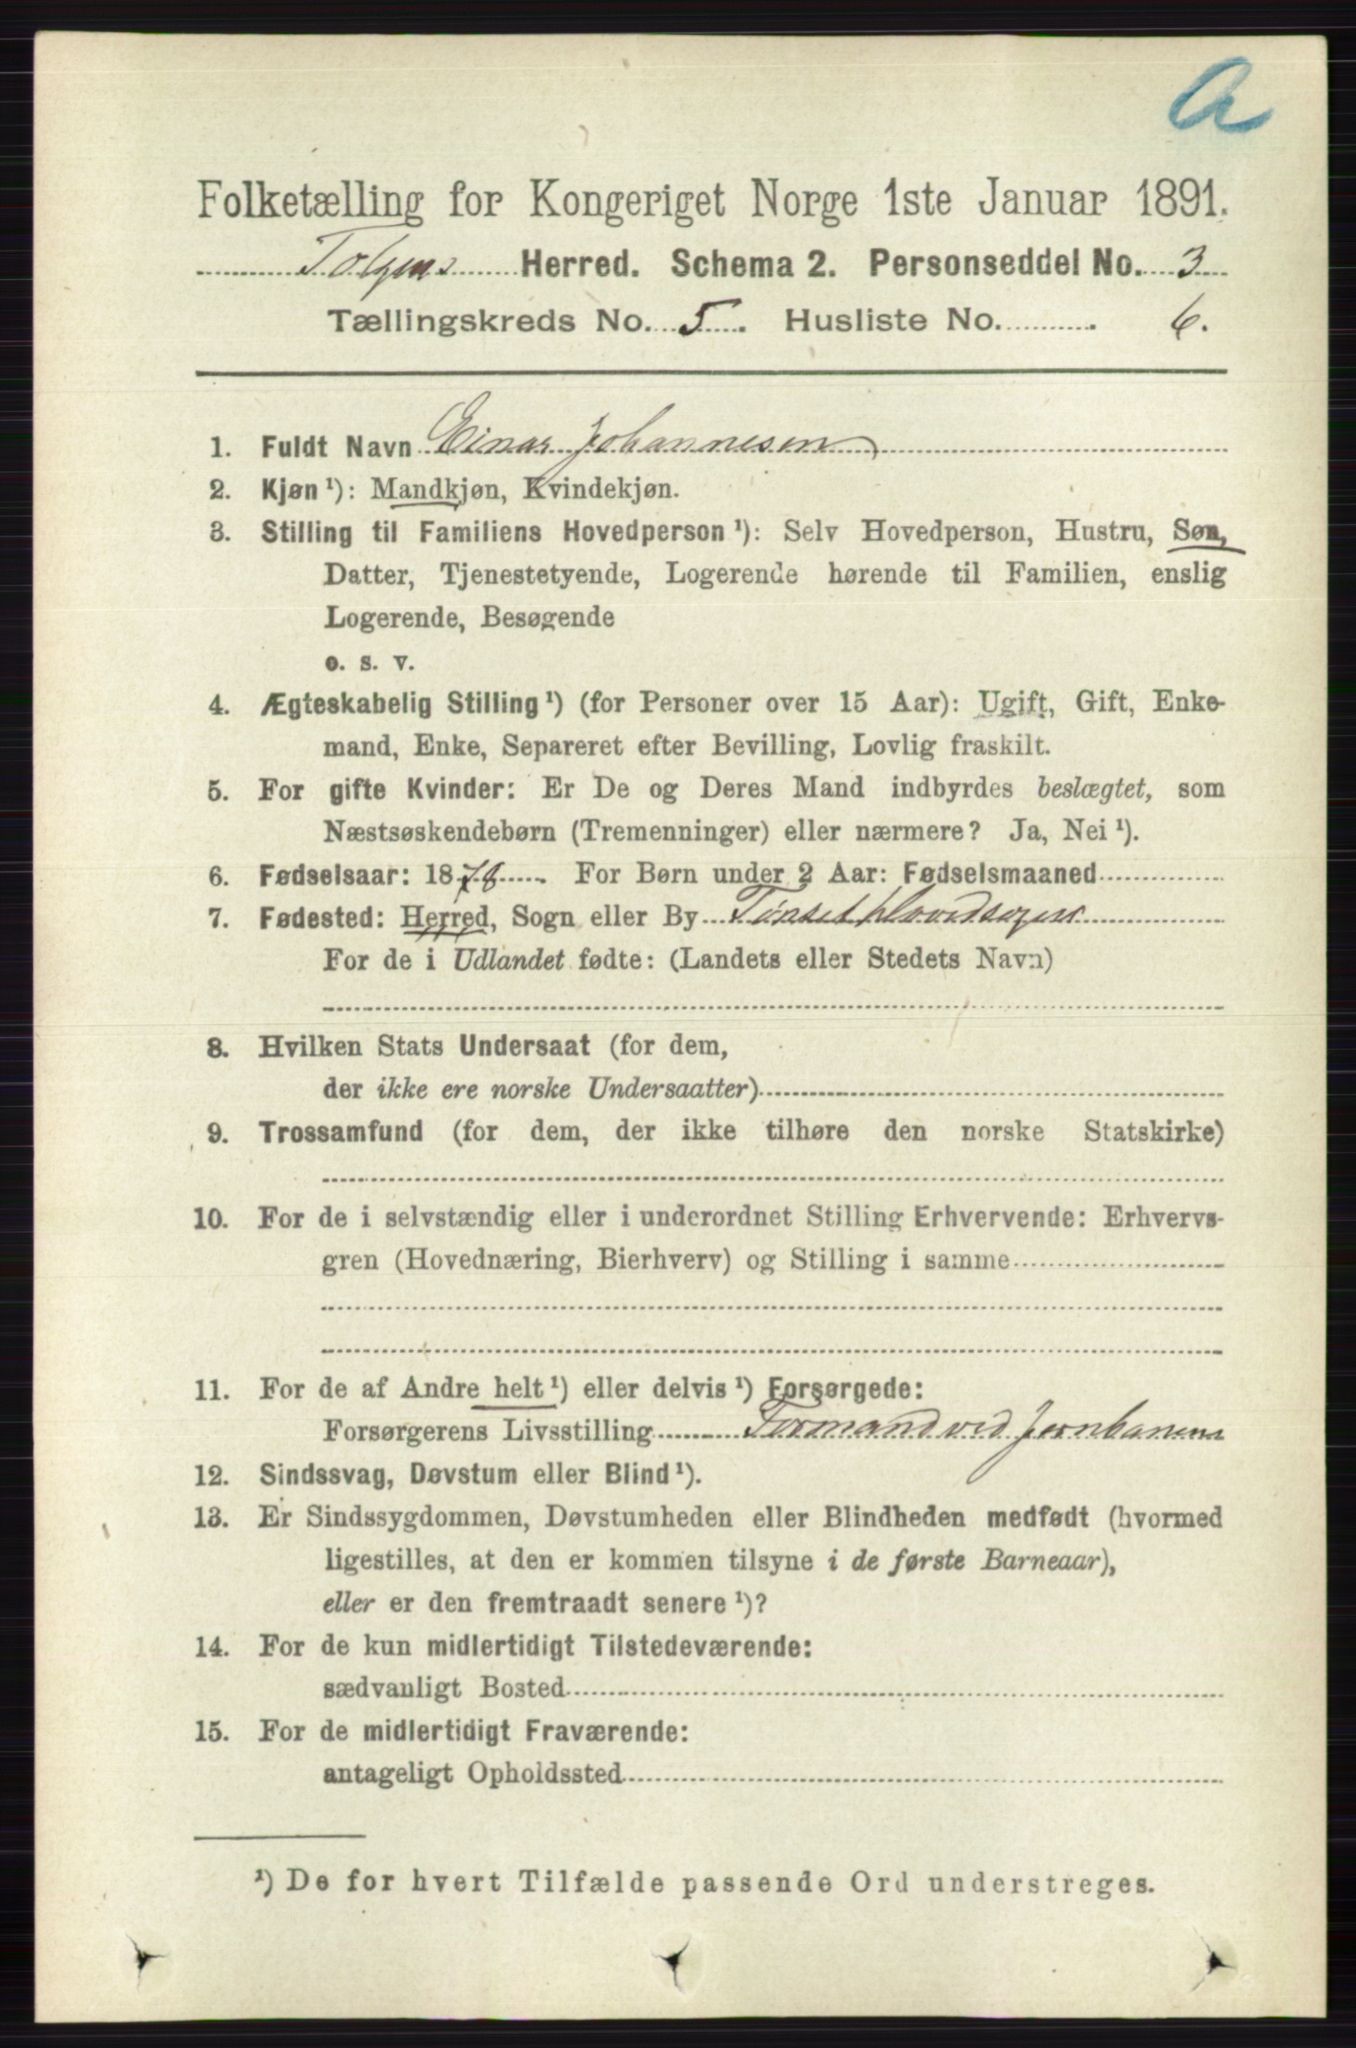 a
Folketælling for Kongeriget Norge 1ste Januar 1891.
Tolgens Herred. Schema 2. Personseddel No. 3
Tællingskreds No. 5. Husliste No. 6.
1. Fuldt Navn Einar Johannesen
2. Kjøn ¹): Mandkjøn, Kvindekjøn.
3. Stilling til Familiens Hovedperson ¹): Selv Hovedperson, Hustru, Søn,
Datter, Tjenestetyende, Logerende hørende til Familien, enslig
Logerende, Besøgende
o. s. v.
4. Ægteskabelig Stilling ¹) (for Personer over 15 Aar): Ugift, Gift, Enke-
mand, Enke, Separeret efter Bevilling, Lovlig fraskilt.
5. For gifte Kvinder: Er De og Deres Mand indbyrdes beslægtet, som
Næstsøskendebørn (Tremenninger) eller nærmere? Ja, Nei ¹).
6. Fødselsaar: 1878. For Børn under 2 Aar: Fødselsmaaned
7. Fødested: Herred, Sogn eller By Tønset Hovedsogn
For de i Udlandet fødte: (Landets eller Stedets Navn)
8. Hvilken Stats Undersaat (for dem,
der ikke ere norske Undersaatter)
9. Trossamfund (for dem, der ikke tilhøre den norske Statskirke)
10. For de i selvstændig eller i underordnet Stilling Erhvervende: Erhvervs-
gren (Hovednæring, Bierhverv) og Stilling i samme
11. For de af Andre helt ¹) eller delvis ¹) Forsørgede:
Forsørgerens Livsstilling Formand ved Jernbanen
12. Sindssvag, Døvstum eller Blind ¹).
13. Er Sindssygdommen, Døvstumheden eller Blindheden medfødt (hvormed
ligestilles, at den er kommen tilsyne i de første Barneaar),
eller er den fremtraadt senere ¹)?
14. For de kun midlertidigt Tilstedeværende:
sædvanligt Bosted
15. For de midlertidigt Fraværende:
antageligt Opholdssted
¹) De for hvert Tilfælde passende Ord understreges.